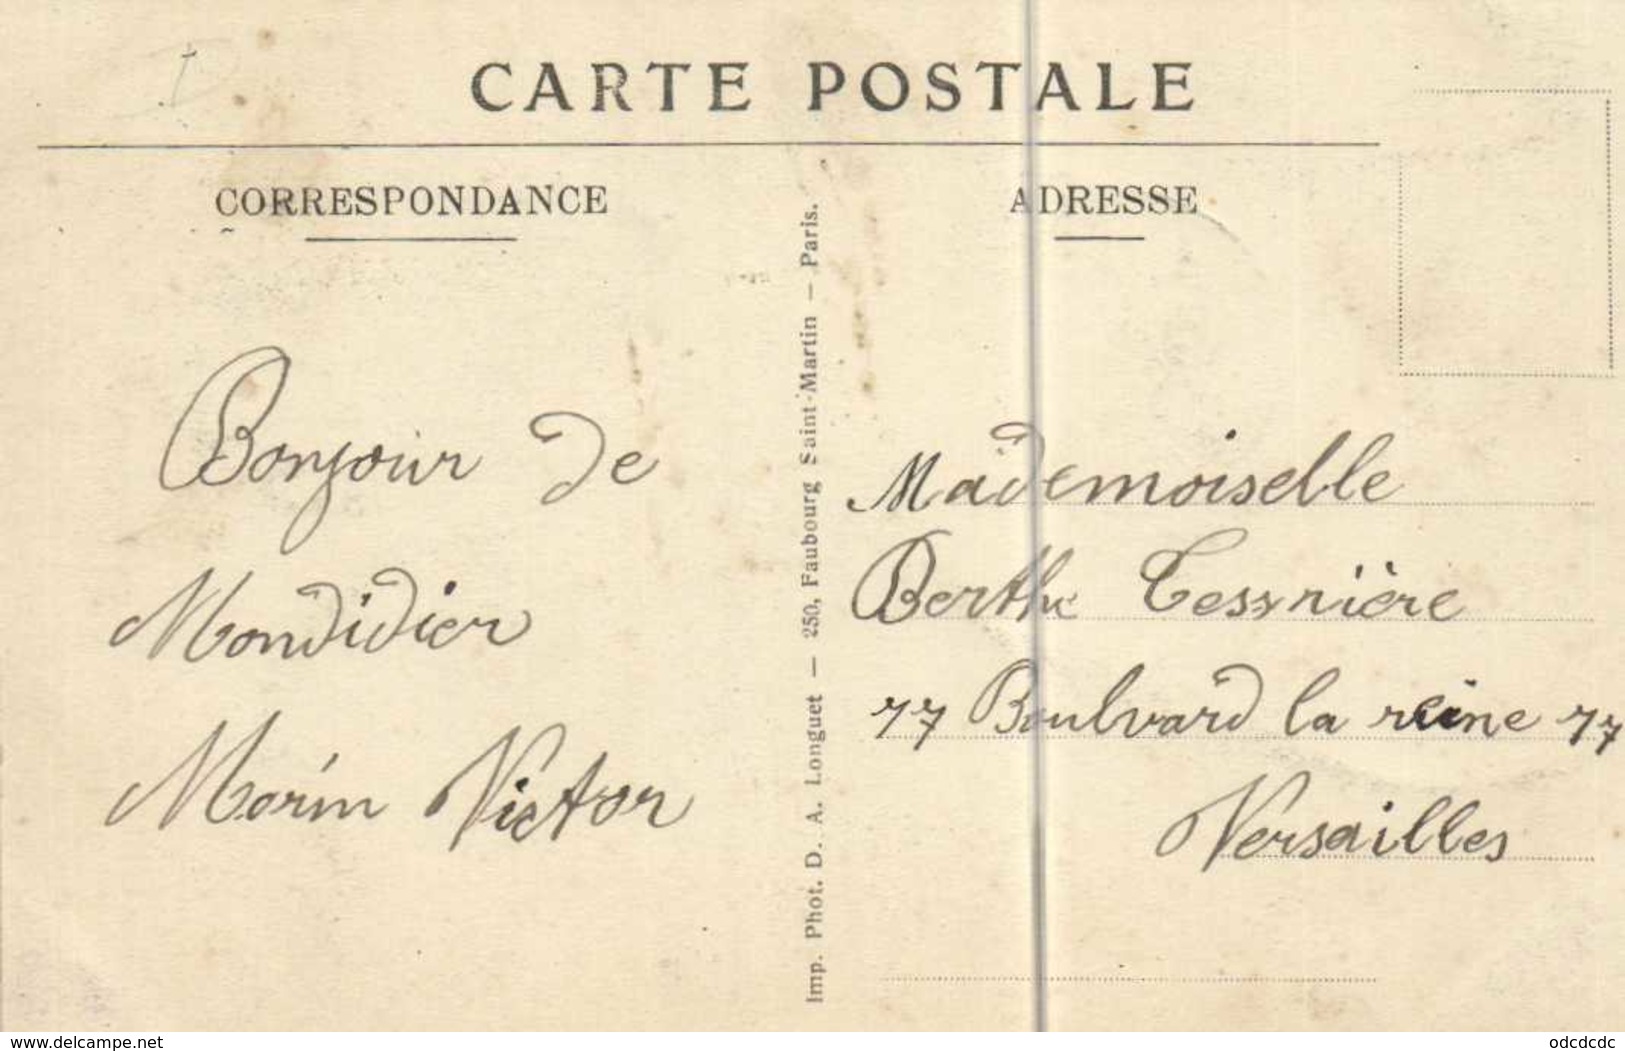 CARTE POSTALE
CORRESPONDANCE
Bonjour de
Mondidier
Morin Victor
Imp. Phot. D. A. Longuet — 250, Faubourg Saint-Martin — Paris.
ADRESSE
Mademoiselle
Berthe
77 Boulvard la reine 77
Versailles
www.delcampe.net
odcdcdc